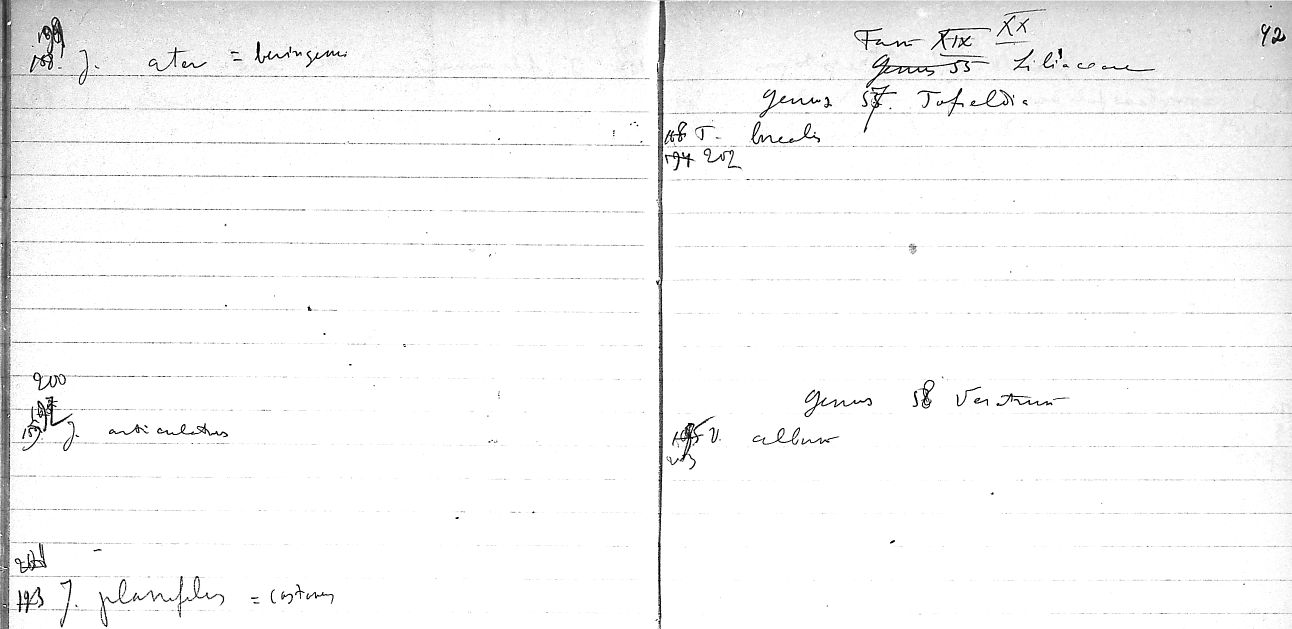 199
188. J. ater = beringensis
200
J. articulatus
193 J. planifolius = castaneus
42
Fam XIX XX
Genus 55 Liliaceae
Genus 57. Tofieldia
T. borealis
194 202
Genus 58 Veratrum
195 V. album
203